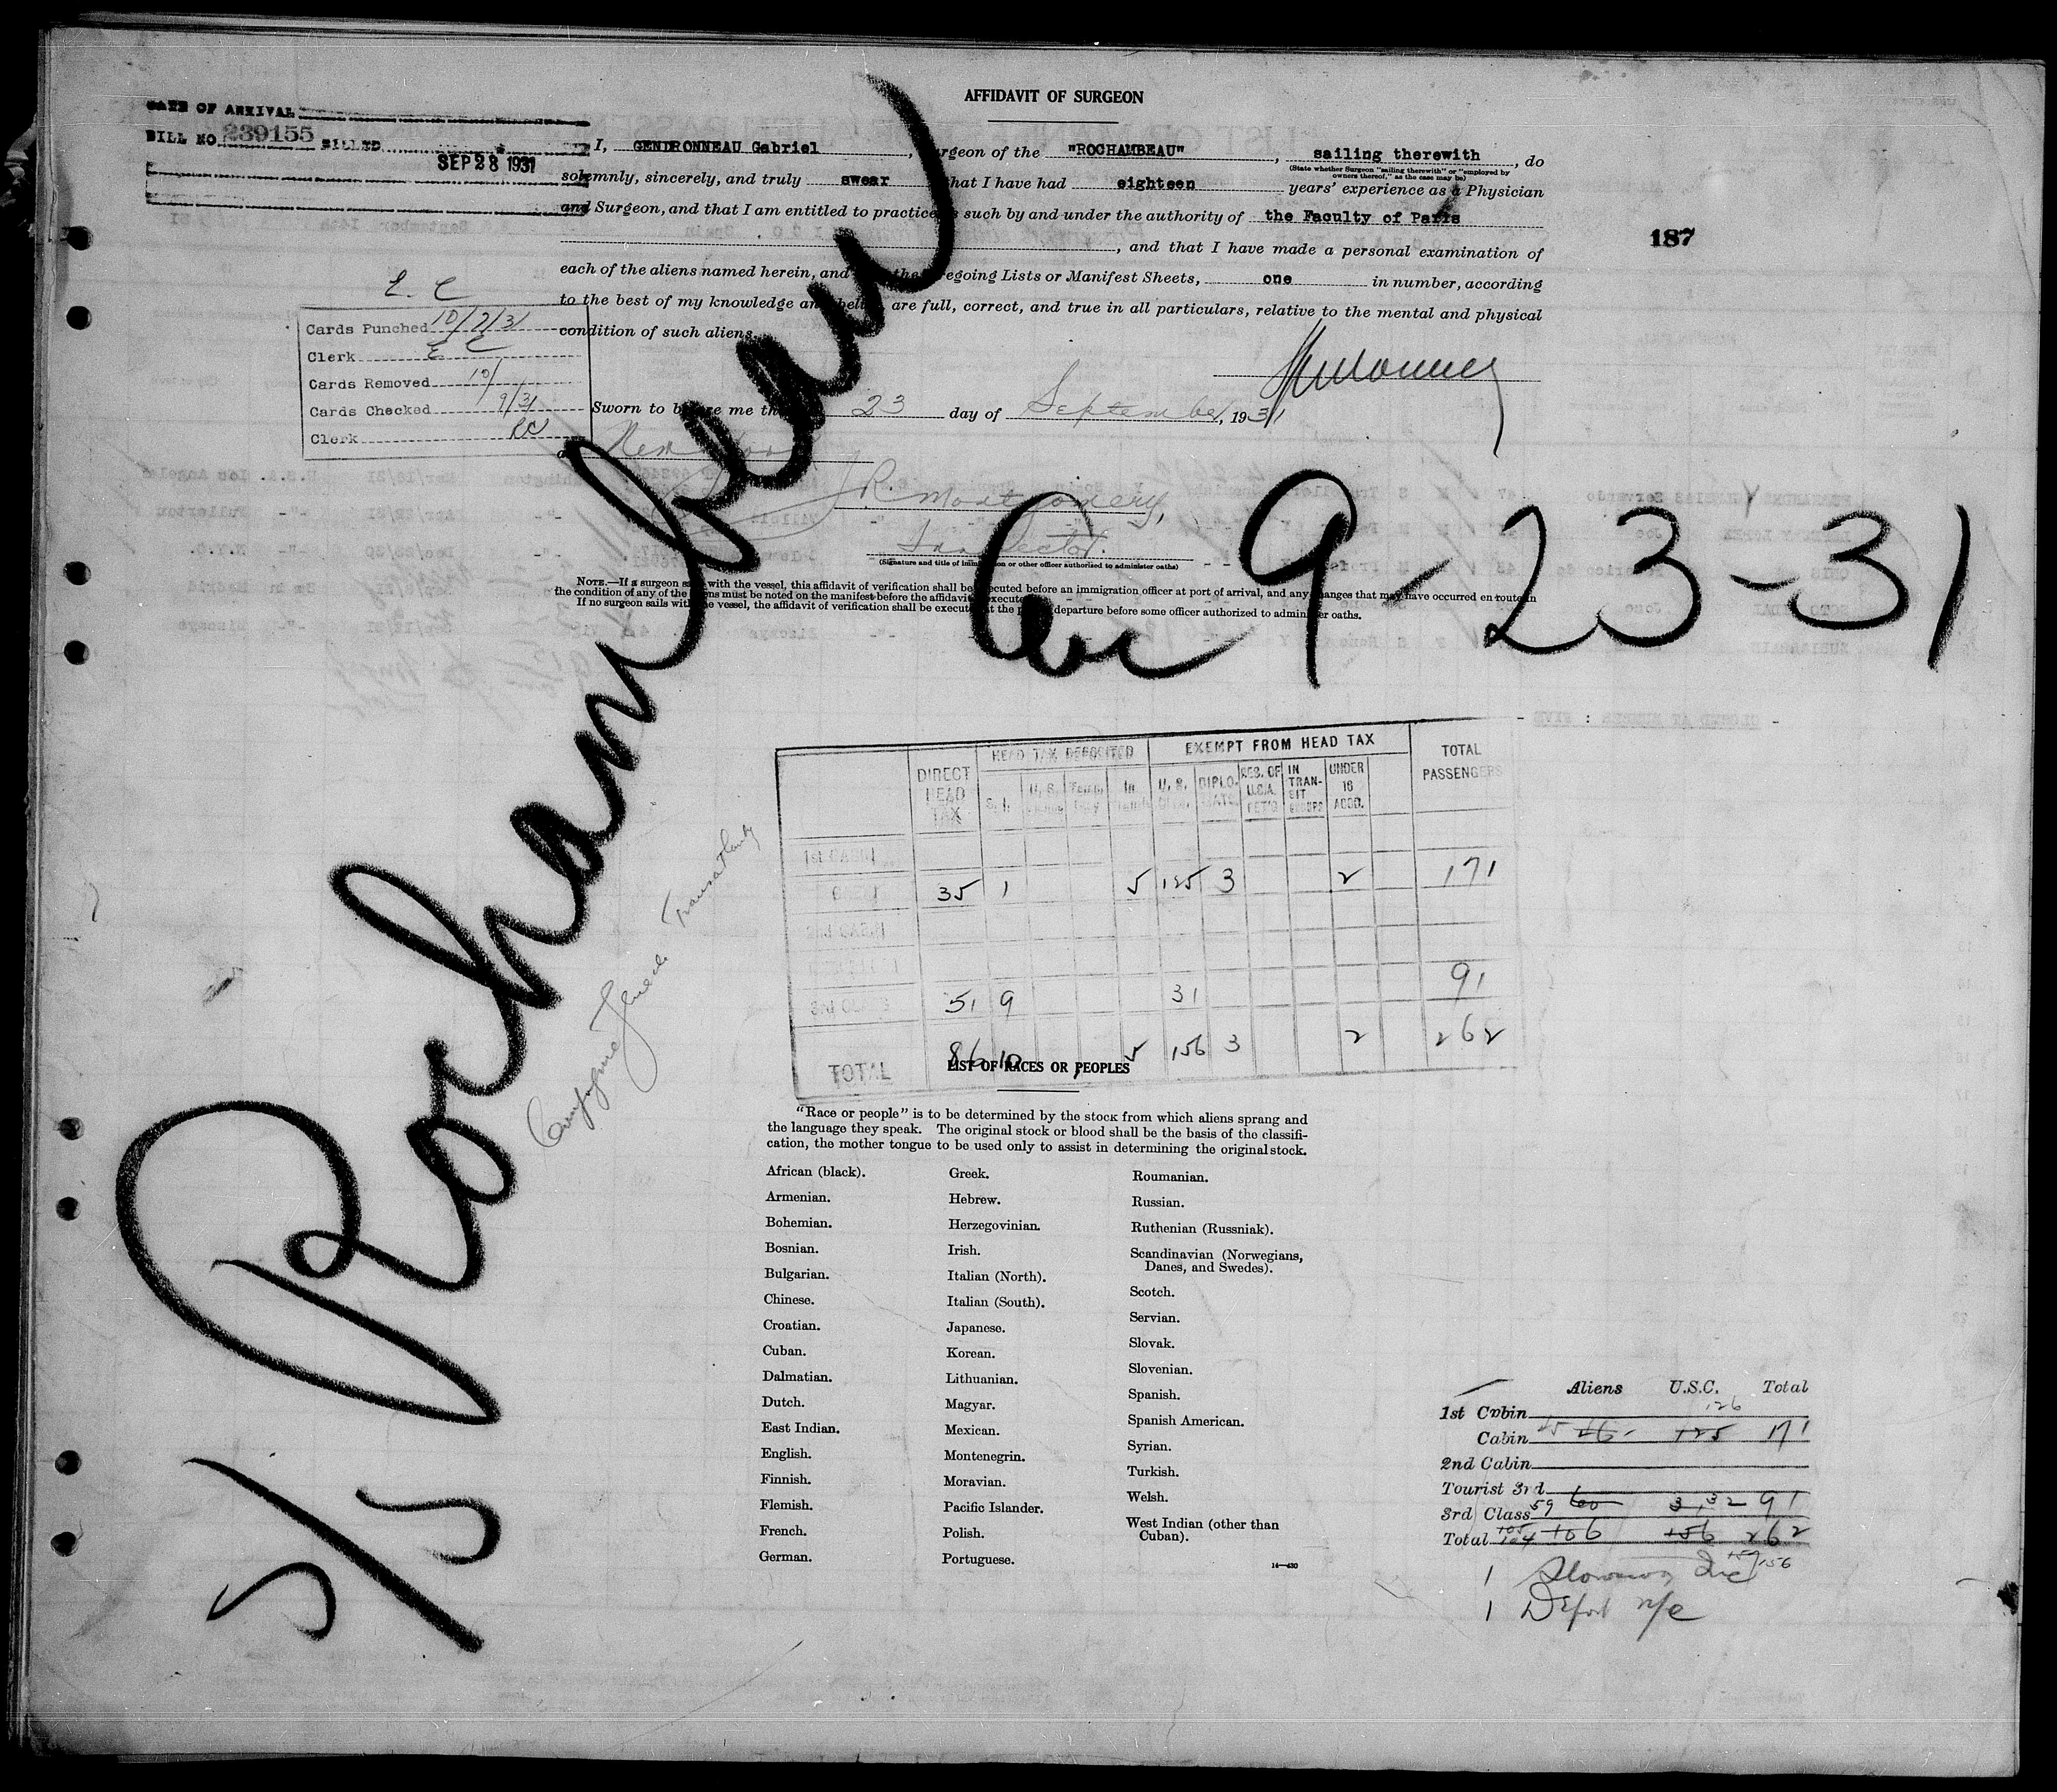 AFFIDAVIT OF SURGEON
DATE OF ARRIVAL
BILL NO. 239155 BILLED
SEP 28 1931
I, GENDRONNEAU Gabriel, Surgeon of the "ROCHAMBEAU", sailing therewith, do
(State whether Surgeon "sailing therewith" or "employed by
owners thereof," as the case may be)
solemnly, sincerely, and truly swear that I have had eighteen years' experience as a Physician
and Surgeon, and that I am entitled to practice as such by and under the authority of the Faculty of Paris
187
, and that I have made a personal examination of
each of the aliens named herein, and the foregoing Lists or Manifest Sheets, one in number, according
to the best of my knowledge and belief, are full, correct, and true in all particulars, relative to the mental and physical
condition of such aliens.
E. C
Cards Punched 10/7/31
Clerk E C
Cards Removed 10/
Cards Checked 9/31
Clerk
Sworn to before me this 23 day of September, 1931
at New York
R. Montgomery,
Inspector.
(Signature and title of immigration or other officer authorized to administer oaths)
NOTE.—If a surgeon sails with the vessel, this affidavit of verification shall be executed before an immigration officer at port of arrival, and any changes that may have occurred en route in
the condition of any of the aliens must be noted on the manifest before the affidavit is executed.
If no surgeon sails with the vessel, the affidavit of verification shall be executed at the port of departure before some officer authorized to administer oaths.
S/S Rochambeau
Arr 9-23-31
Compagnie Générale Transatlantique
DIRECT HEAD TAX HEAD TAX DEPOSITED EXEMPT FROM HEAD TAX TOTAL PASSENGERS
S. I. U. S. In Transit U. S. DIPLO-MATS RES. OF U.S.A. RET'G IN TRAN-SIT UNDER 16 ACCD.
1st CABIN
CABIN 35 1 5 125 3 2 171
2nd CABIN
91
3rd CLASS 51 9 31
TOTAL 86 10 5 156 3 2 262
LIST OF RACES OR PEOPLES
"Race or people" is to be determined by the stock from which aliens sprang and
the language they speak. The original stock or blood shall be the basis of the classifi-
cation, the mother tongue to be used only to assist in determining the original stock.
African (black).
Armenian.
Bohemian.
Bosnian.
Bulgarian.
Chinese.
Croatian.
Cuban.
Dalmatian.
Dutch.
East Indian.
English.
Finnish.
Flemish.
French.
German.
Greek.
Hebrew.
Herzegovinian.
Irish.
Italian (North).
Italian (South).
Japanese.
Korean.
Lithuanian.
Magyar.
Mexican.
Montenegrin.
Moravian.
Pacific Islander.
Polish.
Portuguese.
Roumanian.
Russian.
Ruthenian (Russniak).
Scandinavian (Norwegians,
Danes, and Swedes).
Scotch.
Servian.
Slovak.
Slovenian.
Spanish.
Spanish American.
Syrian.
Turkish.
Welsh.
West Indian (other than
Cuban).
14—430
Aliens U.S.C. Total
126
1st Cabin
Cabin 45 46 125 171
2nd Cabin
Tourist 3rd
3rd Class 59 60 31 32 91
Total 105 104 106 156 262
156
1
1 Deport